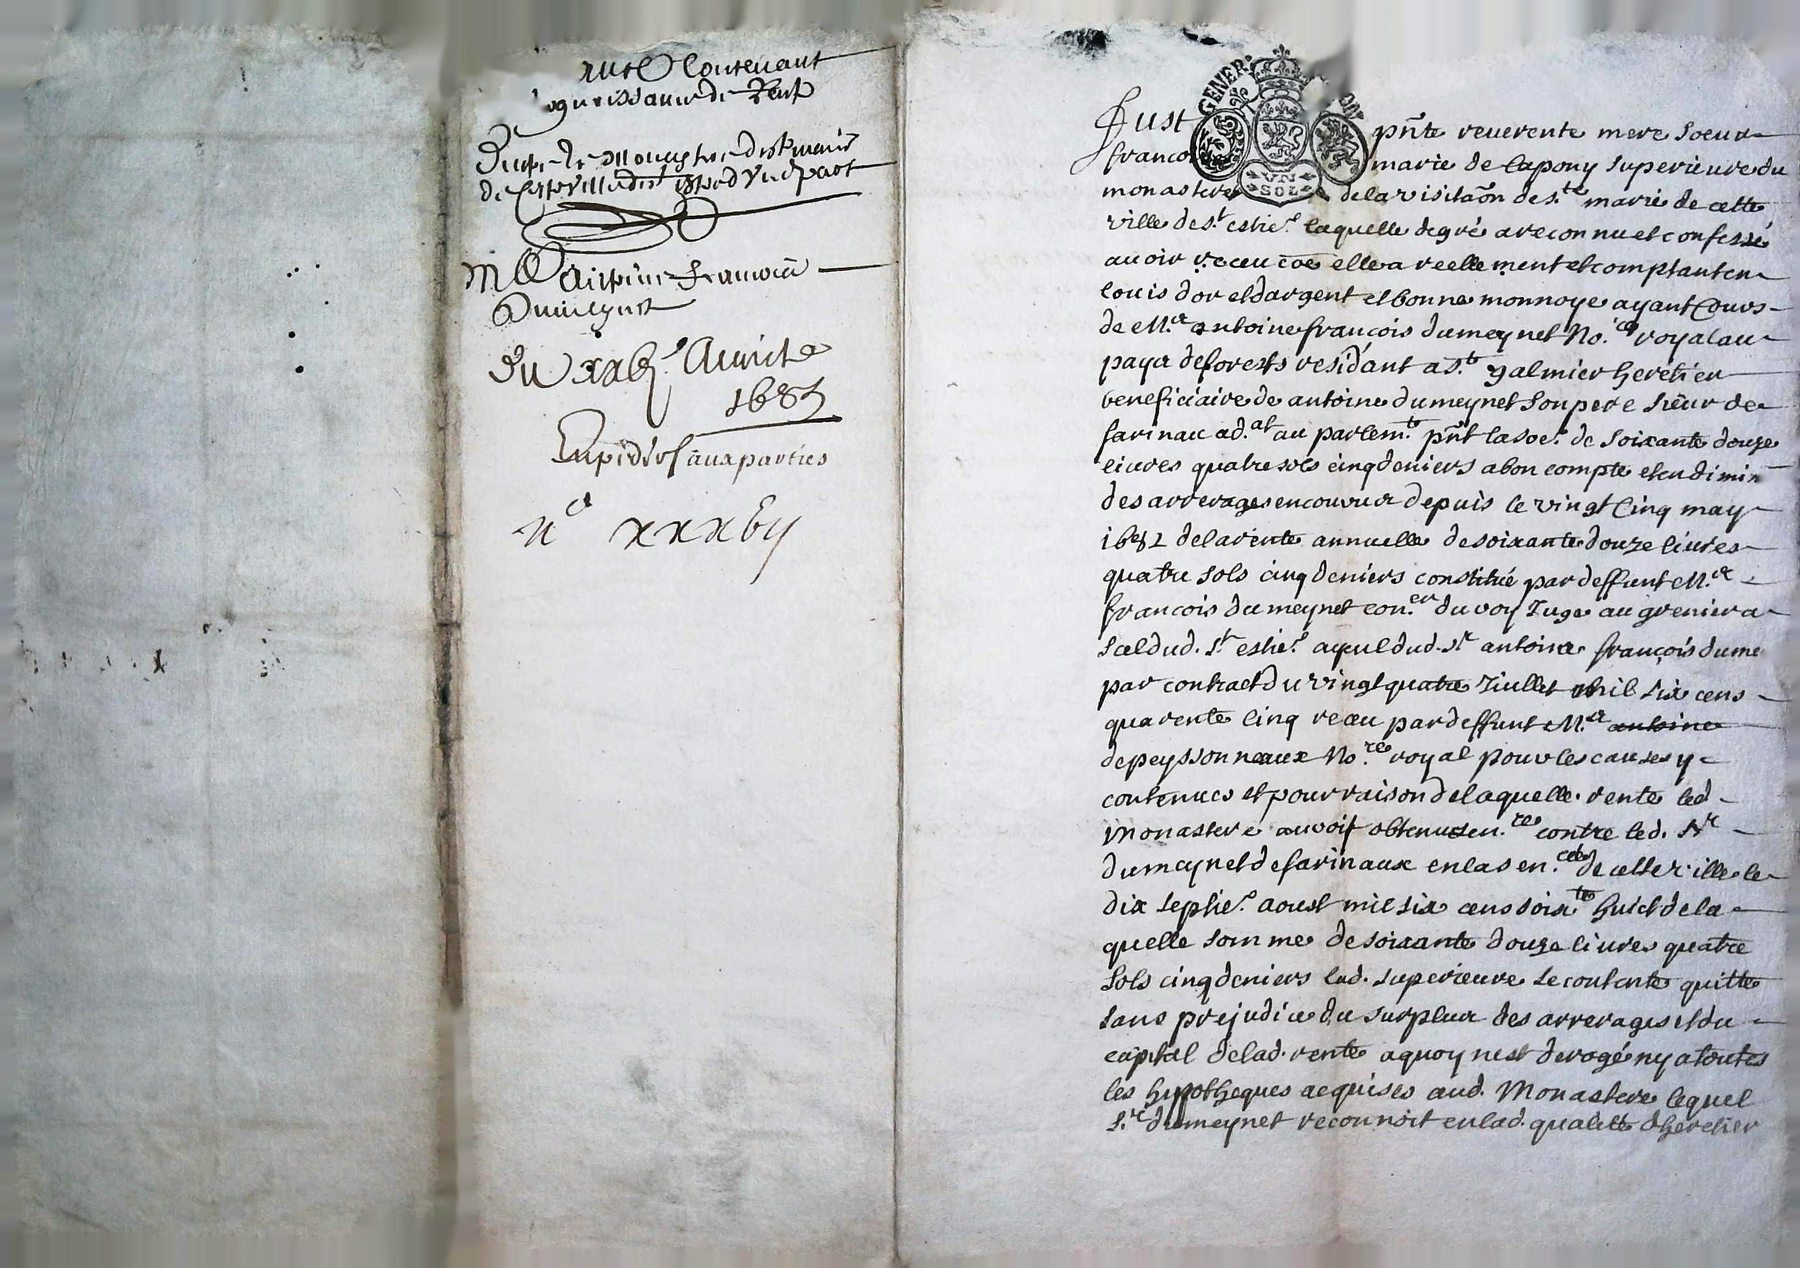 contenant
recognoissance de Rente
Dupt le Monastere de Ste marie
de cette ville
Me Antoine François
Dumeynet
Du xxbje Aurile
1683
Expedié aux parties
ne xxxbij
GENER
VN
SOL
Fust pñte reuerente mere soeur
francoi marie de Capony superieure du
monastere de la visitaõn de s.te marie de cette
ville de s.t estie.e laquelle de gré a reconnu et confessé
auoir receu cõe elle a reellement et comptant en
louis d'or et d'argent et bonne monnoye ayant cours
de M.e antoine françois dumeynet No.re royal au
pays de forests residant a s.t galmier heretier
beneficiaire de antoine dumeynet son pere sieur de
farinau ad.at au parlem.t pñt la soe. de soixante douze
liures quatre sols cinq deniers a bon compte et en dimin
des arrerages encourur depuis le vingt cinq may
1682 de la rente annuelle de soixante douze liures
quatre sols cinq deniers constitué par deffunt M.e
françois dumeynet con.er du roy Juge au grenier a
sel dud. s.t estie.e ayeul dud. s.r antoine françois dume
par contract du vingt quatre Juillet mil six cens
quarente cinq receu par deffunt M.e antoine
depeyssonneaux No.re royal pour les causes y
contenues et pour raison de laquelle rente led.
monastere auoit obtenu sen.ce contre led. s.r
dumeynet de farinaux en la sen.cée de cette ville le
dix septie.e aoust mil six cens soix.te huict de la
quelle somme de soixante douze liures quatre
sols cinq deniers lad. superieure se contente quitte
sans prejudice du surplux des arrerages et du
capital de lad. rente a quoy nest derogé ny a toutes
les hypotheques acquises aud. Monastere lequel
s.r dumeynet reconnoit en lad. qualitté d'heretier